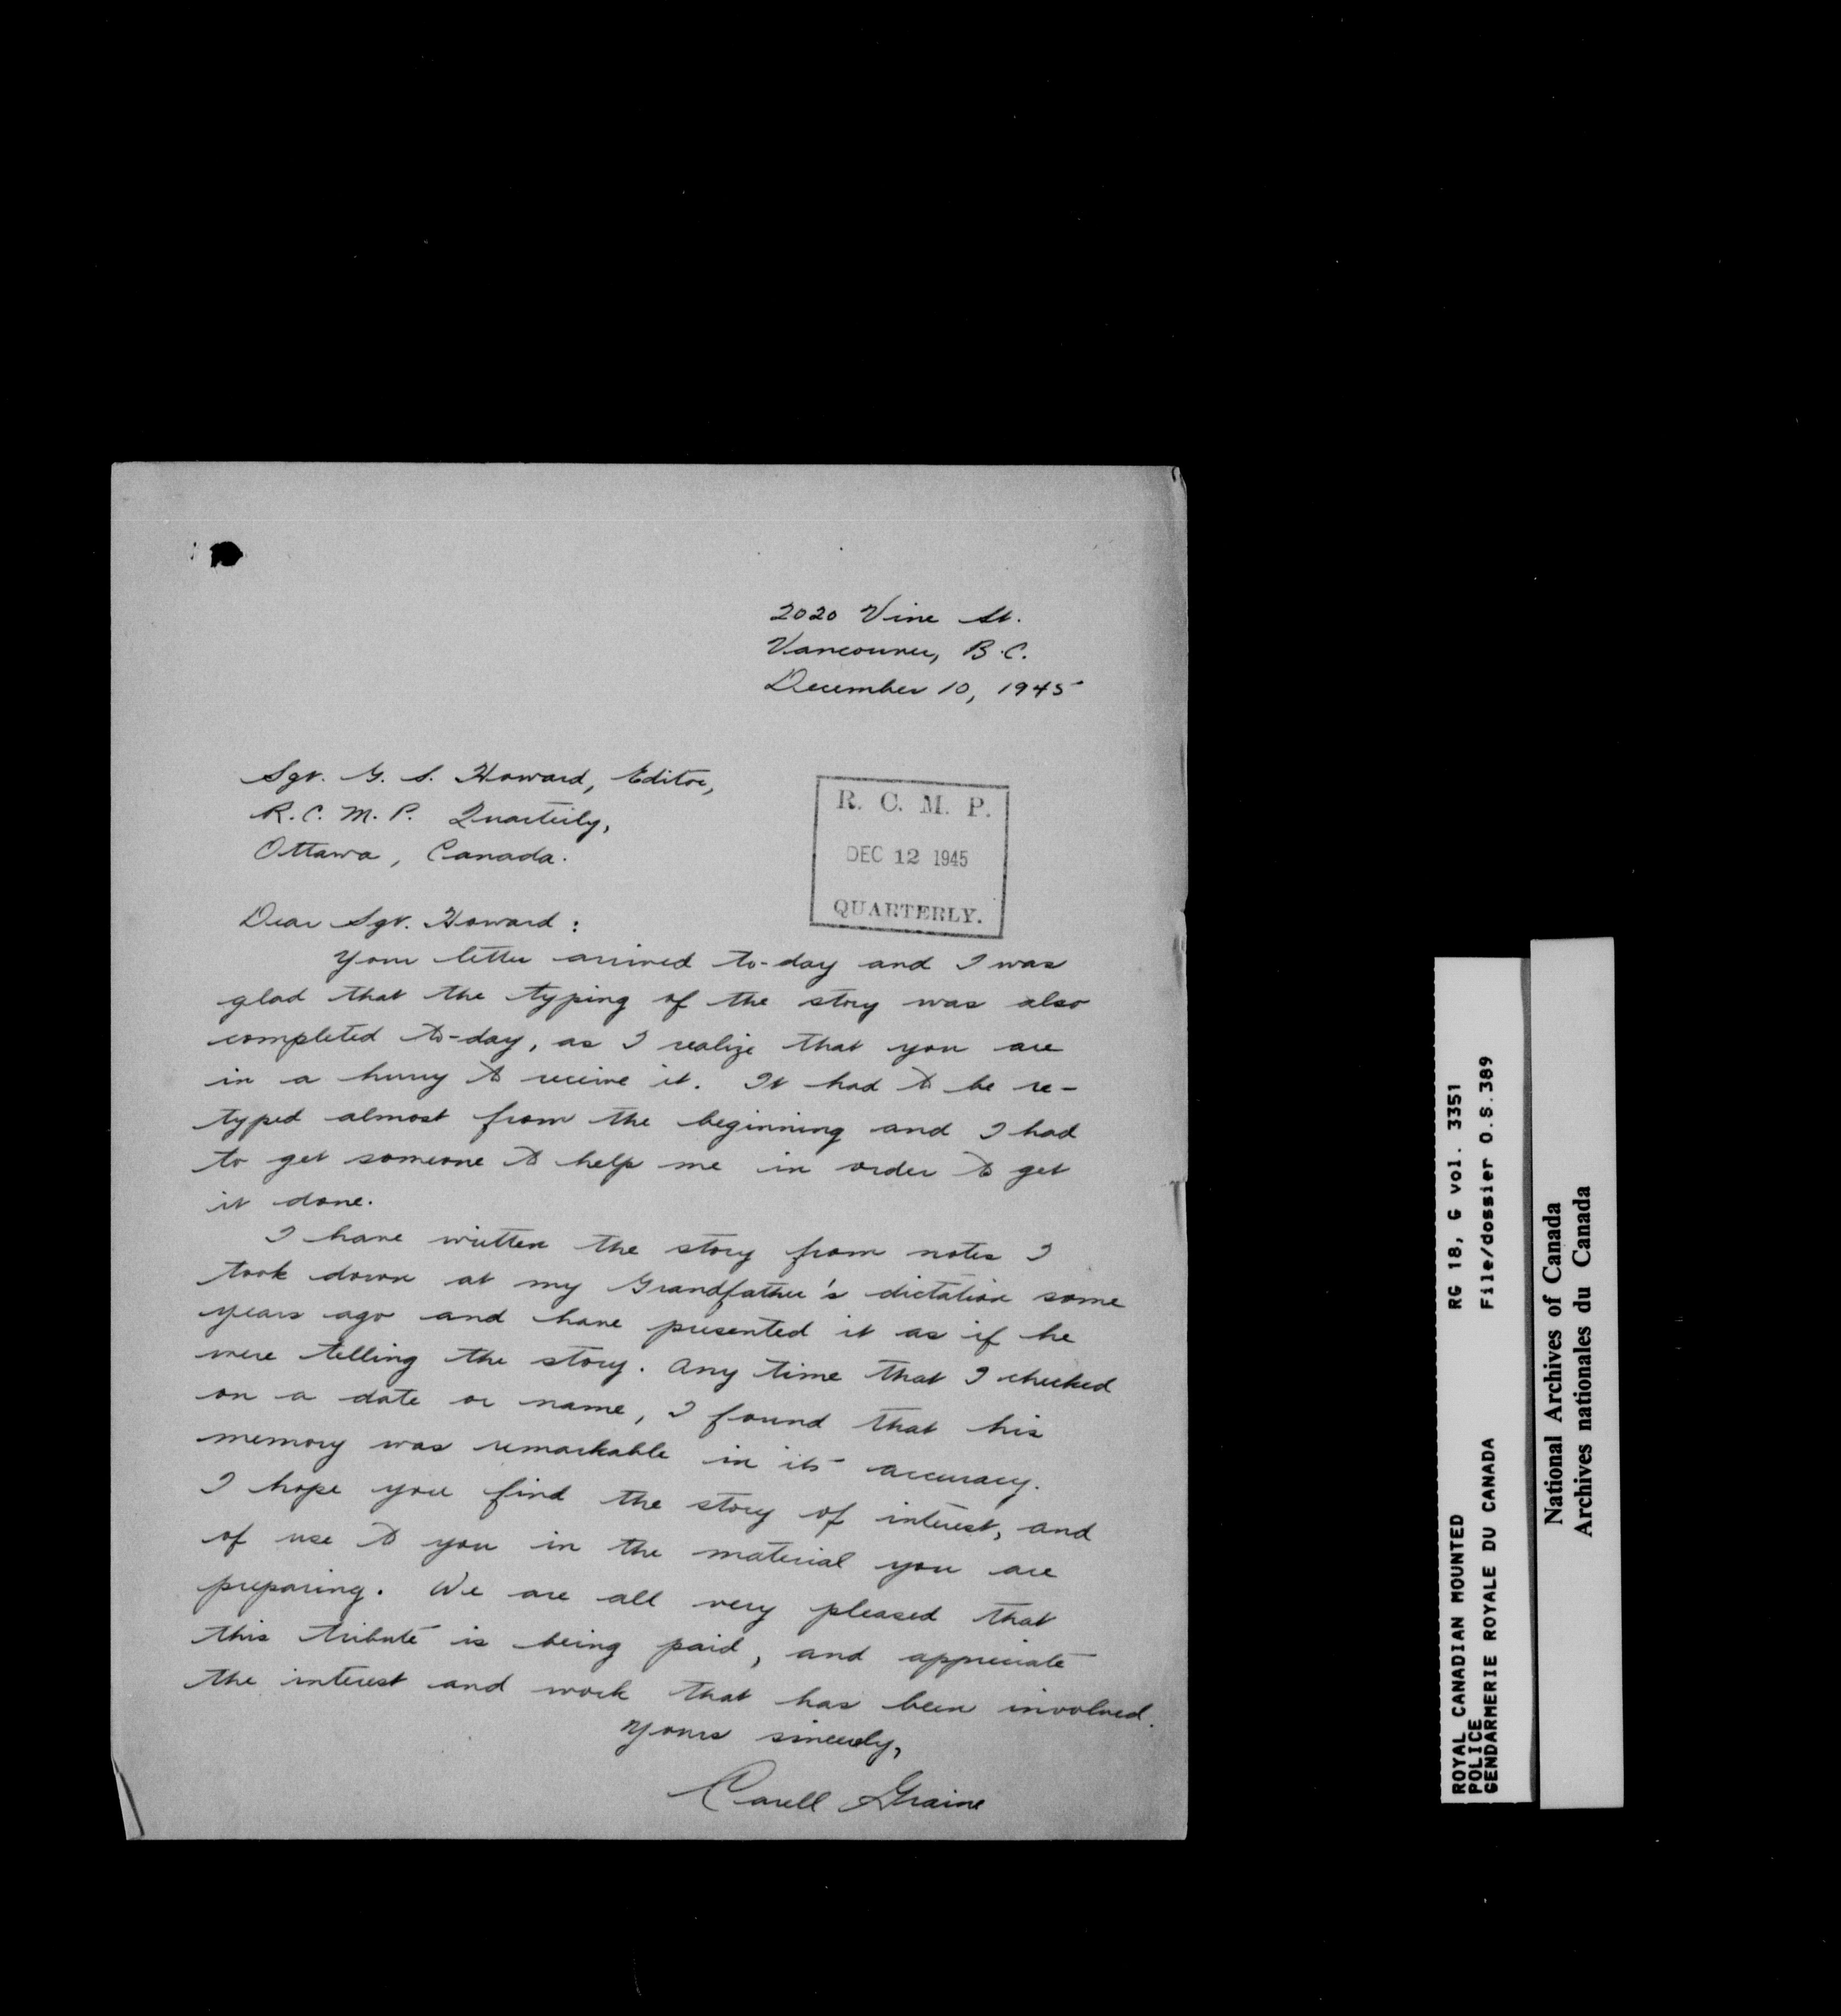 2020 Vine St.
Vancouver, B.C.
December 10, 1945
Sgt. G. S. Howard, Editor,
R.C.M.P. Quarterly,
Ottawa, Canada.
R. C. M. P.
DEC 12 1945
QUARTERLY.
Dear Sgt. Howard:
Your letter arrived to-day and I was
glad that the typing of the story was also
completed to-day, as I realize that you are
in a hurry to receive it. It had to be re-
typed almost from the beginning and I had
to get someone to help me in order to get
it done.
I have written the story from notes I
took down at my Grandfather's dictation some
years ago and have presented it as if he
were telling the story. Any time that I checked
on a date or name, I found that his
memory was remarkable in its accuracy.
I hope you find the story of interest, and
of use to you in the material you are
preparing. We are all very pleased that
this tribute is being paid, and appreciate
the interest and work that has been involved.
Yours sincerely,
Carell Graine
ROYAL CANADIAN MOUNTED RG 18, G vol. 3351
POLICE
GENDARMERIE ROYALE DU CANADA File/dossier O.S.389
National Archives of Canada
Archives nationales du Canada